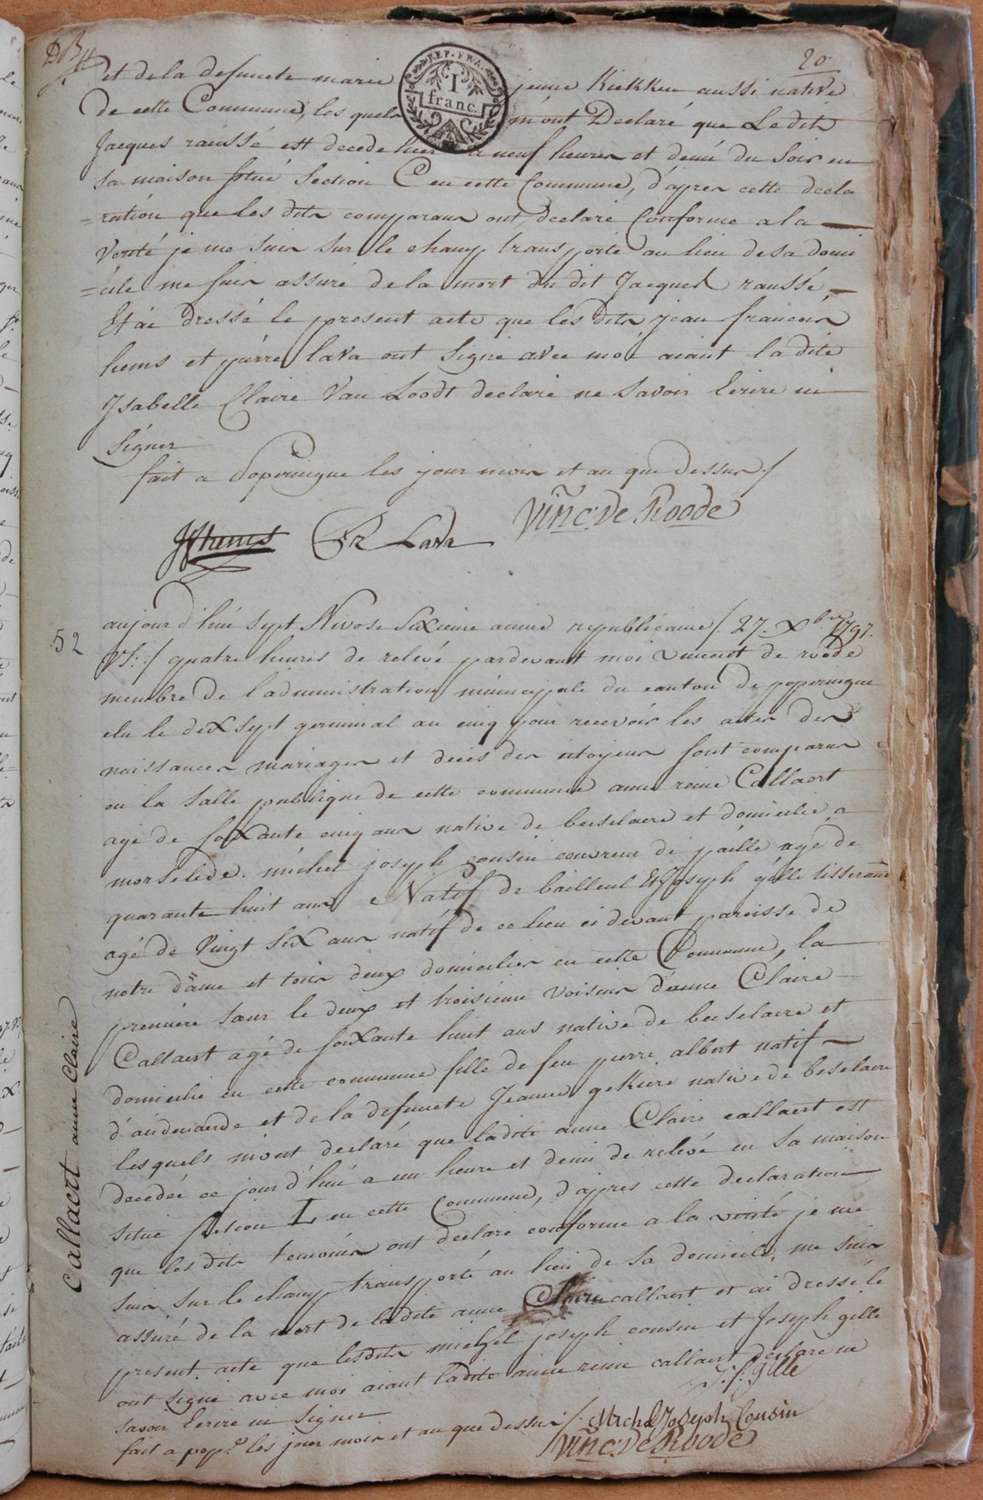 20
et de la defuncte marie jenne Kiekken aussi native
de cette Commune, les quels m'ont Declaré que Ledit
Jacques raussé est decedé hier a neuf heures et demi du Soir en
sa maison situé Section C en cette Commune, d'apres cette decla
=ration que les dits comparans ont declaré Conforme a la
verité je me suis sur le champ transporté au lieu de sa domi
=cile me suis assuré de la mort du dit Jacques raussé,
Et ai dressé le present acte que les dits jean francois
hems et pierre lava ont signé avec moi aiant la dite
Ysabelle Claire Van Loodt declaré ne Savoir Ecrire ni
Signer
fait a Poperingue les jour mois et an que dessus /
Vinc: De Roode
REP. FRA.
1
franc.
52
aujourd'hui sept Nivose Sixieme année republicaine /27. Xbre 1797.
VS:/ quatre heures de relevé pardevant moi vincent de roode
membre de l'administration municipale du canton de poperingue
elu le dix sept germinal an cinq pour recevoir les actes des
naissances mariages et decès des citoyens sont comparus
en la Salle publique de cette commune anne reine Callaert
agé de soixante cinq ans native de beselaere et domicilie a
morslede. michel joseph cousin couvreur de paille agé de
quarante huit ans Natif de bailleul Et Joseph gille tisserand
agé de Vingt Six ans natif de ce lieu ci devant paroisse de
notre dame et tous deux domicilies en cette Commune, la
premiere sœur le deux et troisieme voisins d'anne Claire
Callaert agé de soixante huit ans native de beselaere et
domicilié en cette commune fille de feu pierre albert natif
d'audenarde et de la defuncte Jeanne gekiere native de beselaere
lesquels m'ont declaré que ladite anne Claire callaert est
decedée ce jour d'hui a un heure et demi de relevé en Sa maison
situé Section L en cette Commune, d'apres cette declaration
que les dits temoins ont declaré conforme a la verité je me
suis sur le champ transporté au lieu de sa domicile, me suis
assuré de la mort de la dite anne Claire callaert et ai dressé le
present acte que lesdits michel joseph cousin et Joseph gille
ont signé avec moi aiant ladite anne reine callaert declaré ne
savoir Ecrire ni Signer
fait a pop.e les jour mois et an que dessus /.
gille
Michel Joseph Cousin
Vinc: De Roode
Callaert anne Claire